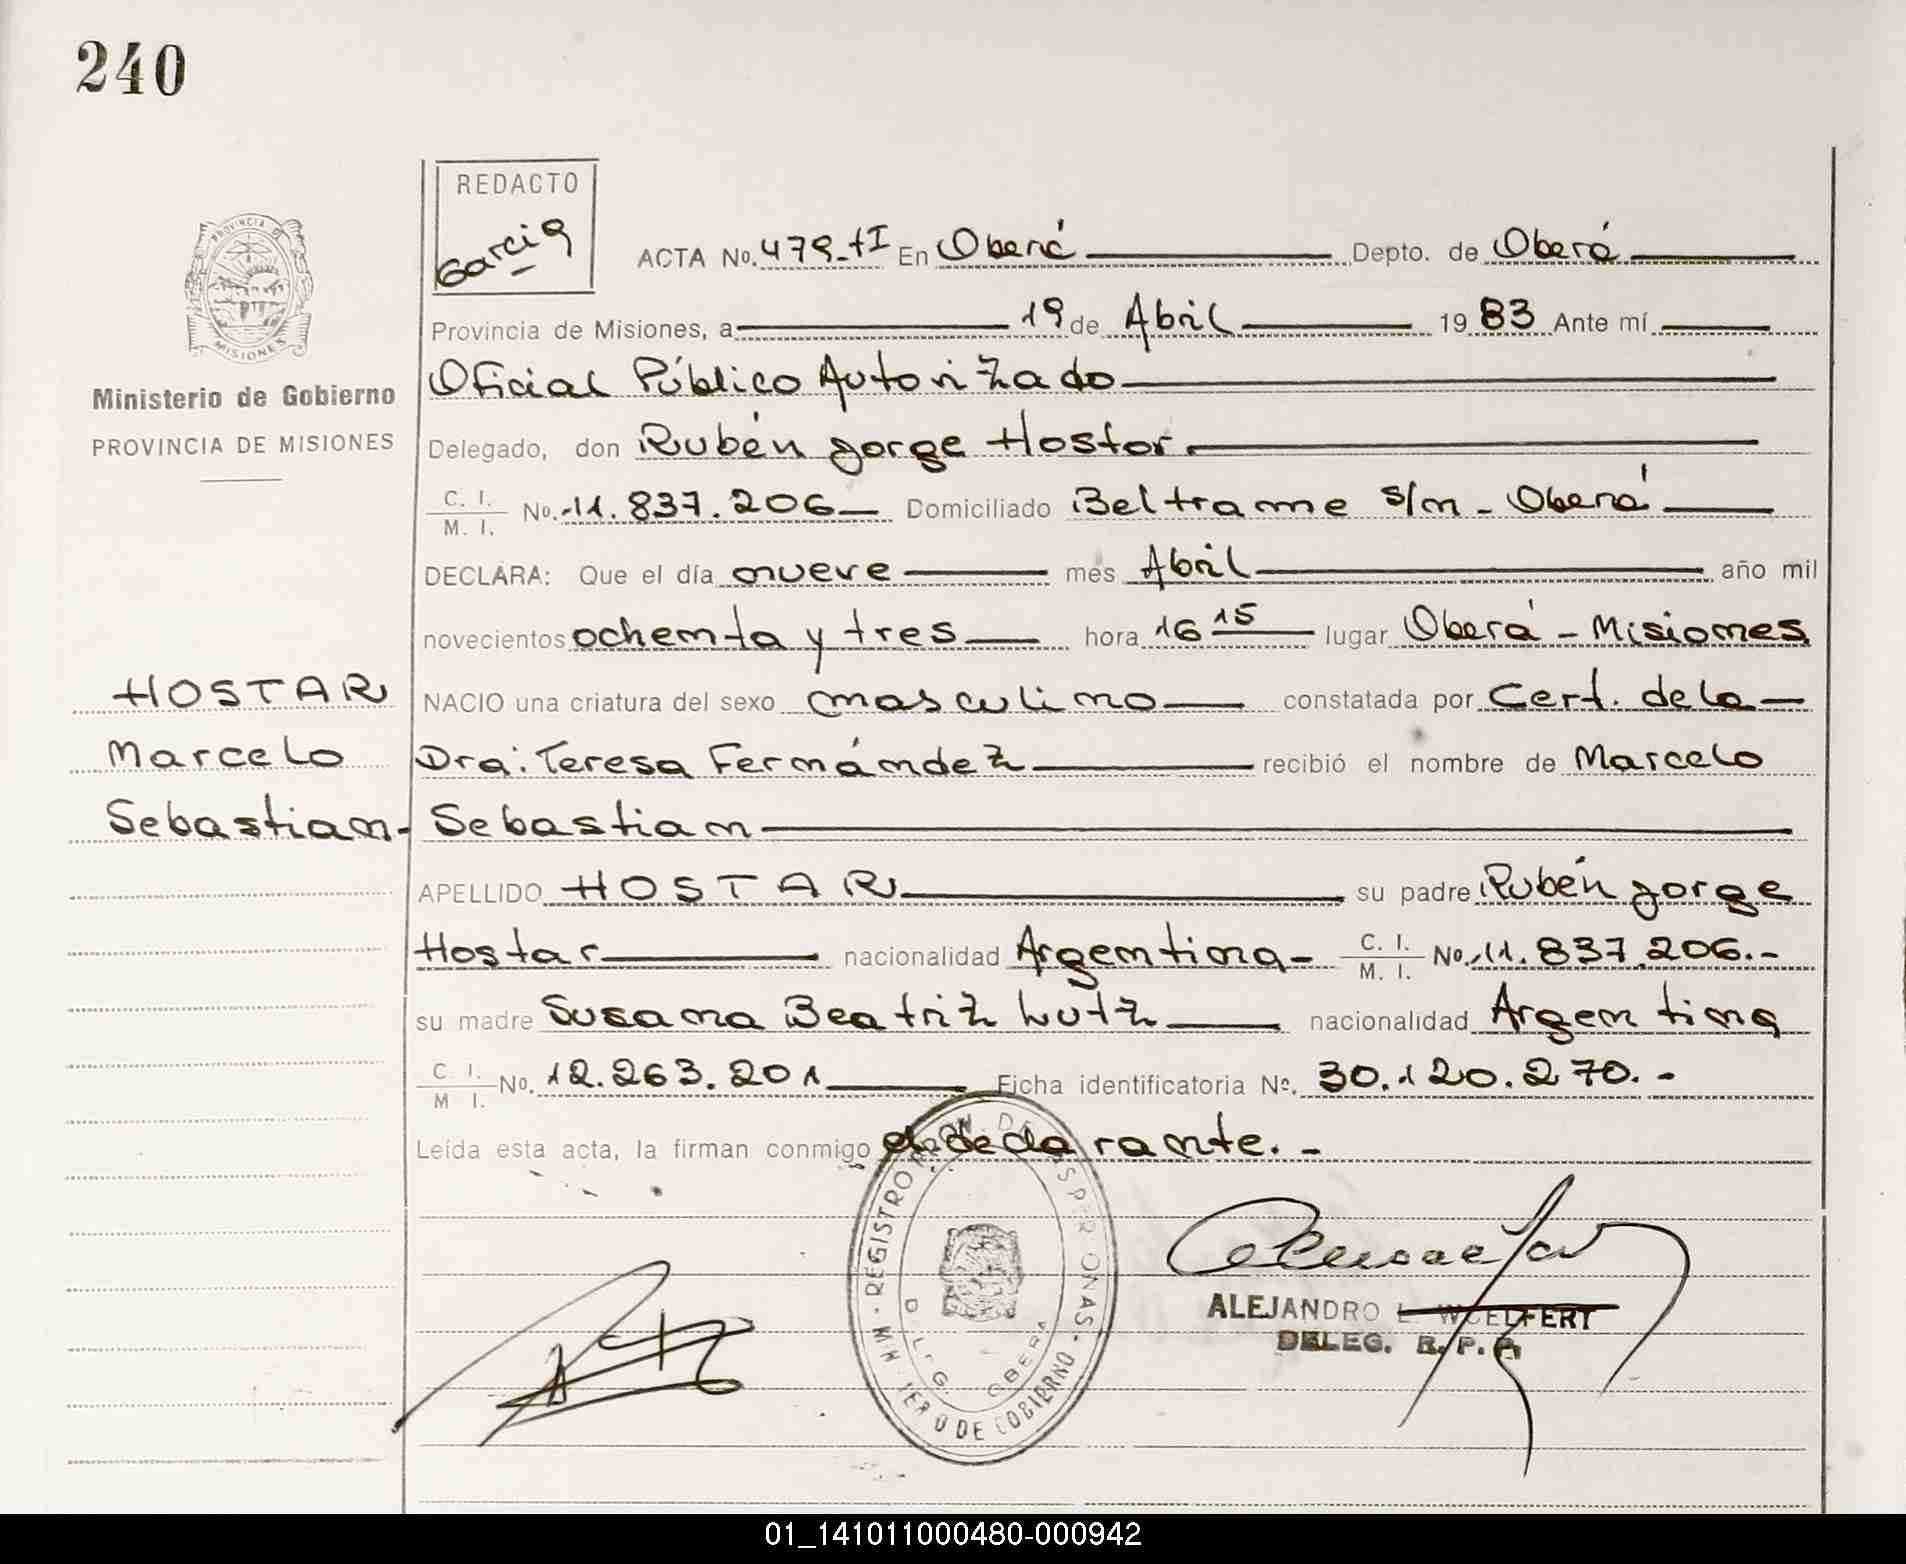 240
REDACTO
Garcia
ACTA No. 479-tI En Oberá Depto. de Oberá
Provincia de Misiones, a 19 de Abril 1983 Ante mí
Oficial Público Autorizado
Delegado, don Rubén Jorge Hostar
C. I.
M. I.
No. 11.837.206 Domiciliado Beltrame s/n - Oberá
DECLARA: Que el día nueve mes Abril año mil
novecientos ochenta y tres hora 16 15 lugar Oberá - Misiones
NACIO una criatura del sexo masculino constatada por Cert. de la
Dra: Teresa Fernández recibió el nombre de Marcelo
Sebastian
APELLIDO HOSTAR su padre Rubén Jorge
Hostar nacionalidad Argentina - C. I. M. I. No. 11.837.206.-
su madre Susana Beatriz Lutz nacionalidad Argentina
C. I.
M I.
No. 12.263.201 Ficha identificatoria No. 30.120.270.-
Leída esta acta, la firman conmigo el declarante.-
PROVINCIA D
MISIONES
Ministerio de Gobierno
PROVINCIA DE MISIONES
HOSTAR
Marcelo
Sebastian-
ALEJANDRO L. WOELFERT
DELEG. R. P.
REGISTRO DE
OBERA
DE GOBIERNO
01_141011000480-000942